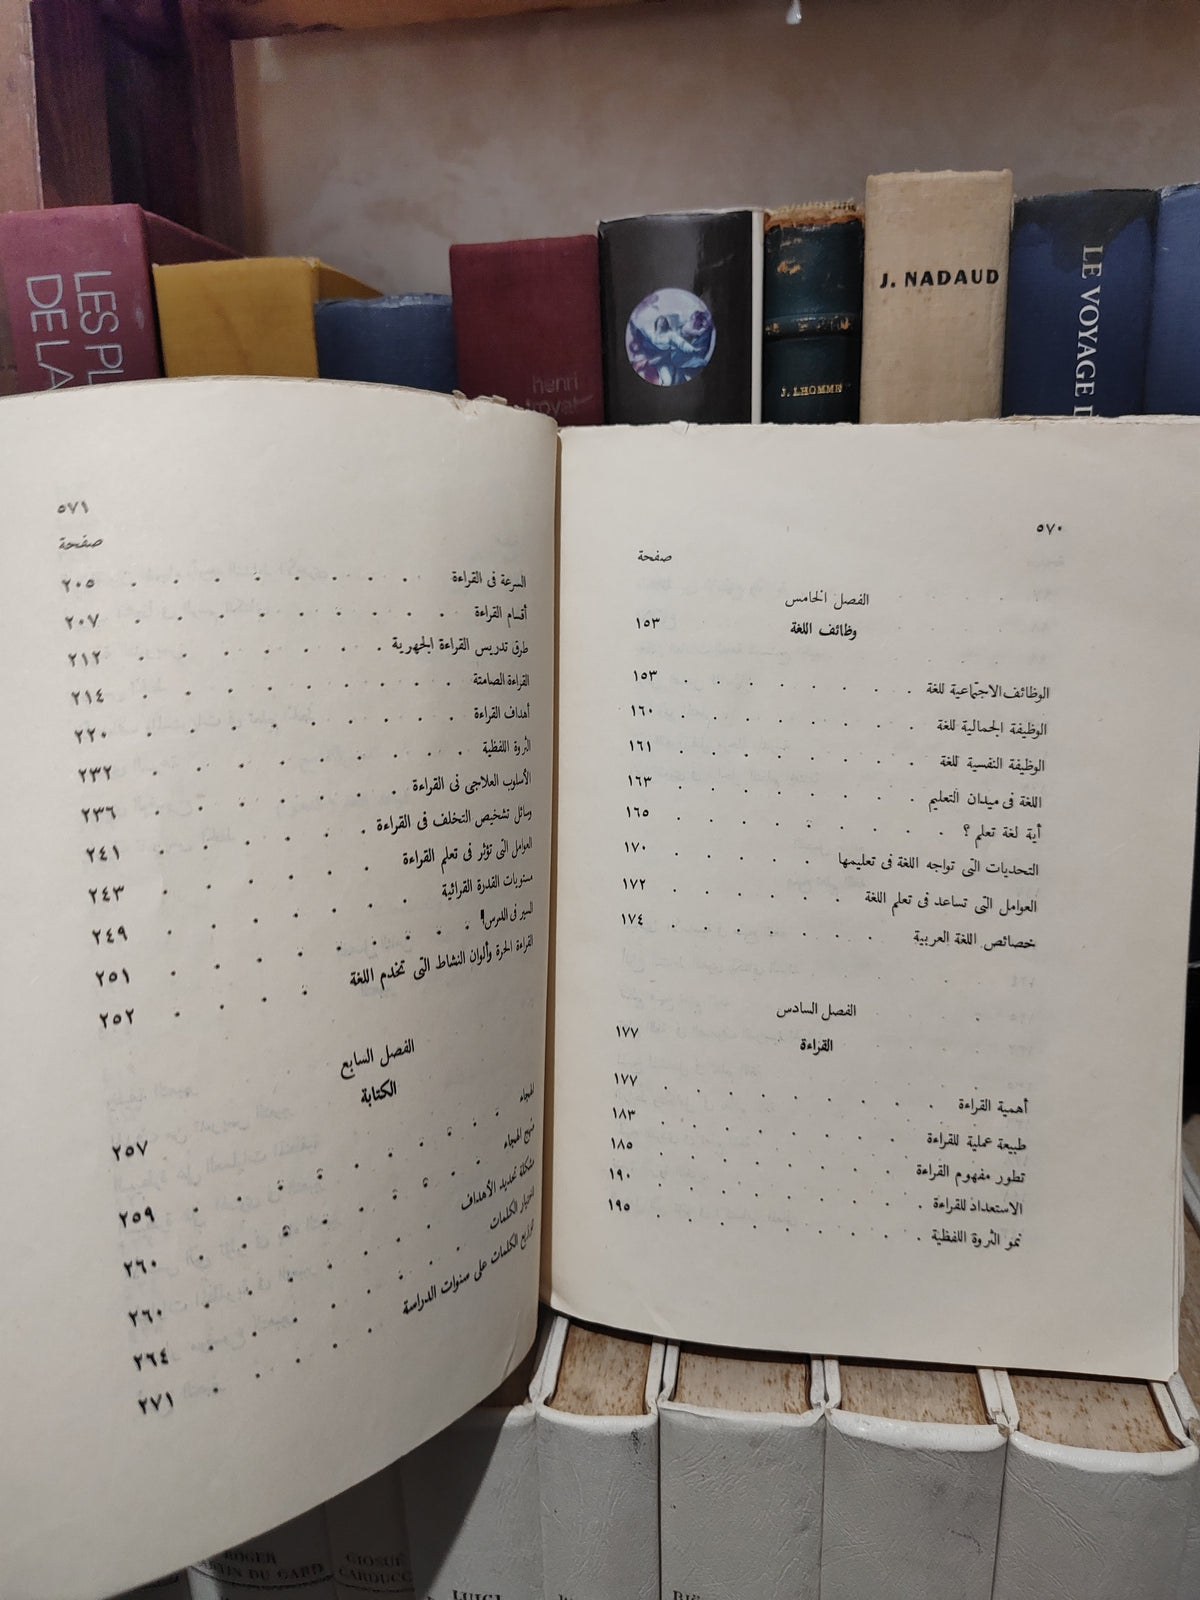 LES PL
DE LA
henri
J. LHOMME
J. NADAUD
LE VOYAGE
٥٧٠
صفحة
الفصل الخامس
وظائف اللغة ١٥٣
الوظائف الاجتماعية للغة . . . . . . . ١٥٣
الوظيفة الجمالية للغة . . . . . . . ١٦٠
الوظيفة النفسية للغة . . . . . . . ١٦١
اللغة فى ميدان التعليم . . . . . . . ١٦٣
أية لغة تعلم ؟ . . . . . . . ١٦٥
التحديات التى تواجه اللغة فى تعليمها . . . . . ١٧٠
العوامل التى تساعد فى تعلم اللغة . . . . . ١٧٢
خصائص اللغة العربية . . . . . . ١٧٤
الفصل السادس
القراءة ١٧٧
أهمية القراءة . . . . . . . ١٧٧
طبيعة عملية للقراءة . . . . . . . ١٨٣
تطور مفهوم القراءة . . . . . . . ١٨٥
الاستعداد للقراءة . . . . . . . ١٩٠
نمو الثروة اللفظية . . . . . . . ١٩٥
٥٧١
صفحة
السرعة فى القراءة . . . . . . . ٢٠٥
أقسام القراءة . . . . . . . ٢٠٧
طرق تدريس القراءة الجهرية . . . . . . ٢١٢
القراءة الصامتة . . . . . . . ٢١٤
أهداف القراءة . . . . . . . ٢٢٠
الثروة اللفظية . . . . . . . ٢٣٢
الأسلوب العلاجى فى القراءة . . . . . . ٢٣٦
وسائل تشخيص التخلف فى القراءة . . . . . ٢٤١
العوامل التى تؤثر فى تعلم القراءة . . . . . ٢٤٣
مستويات القدرة القرائية . . . . . . ٢٤٩
السير فى الدرس . . . . . . . ٢٥١
القراءة الحرة وألوان النشاط التى تخدم اللغة . . . . ٢٥٢
الفصل السابع
الكتابة ٢٥٧
الهجاء . . . . . . . ٢٥٩
منهج الهجاء . . . . . . . ٢٦٠
مشكلة تحديد الأهداف . . . . . . ٢٦٠
اختيار الكلمات . . . . . . ٢٦٤
توزيع الكلمات على سنوات الدراسة . . . . ٢٧١
ROGER
DU GARD
GIOSUE
CARDUCC
LUIGI